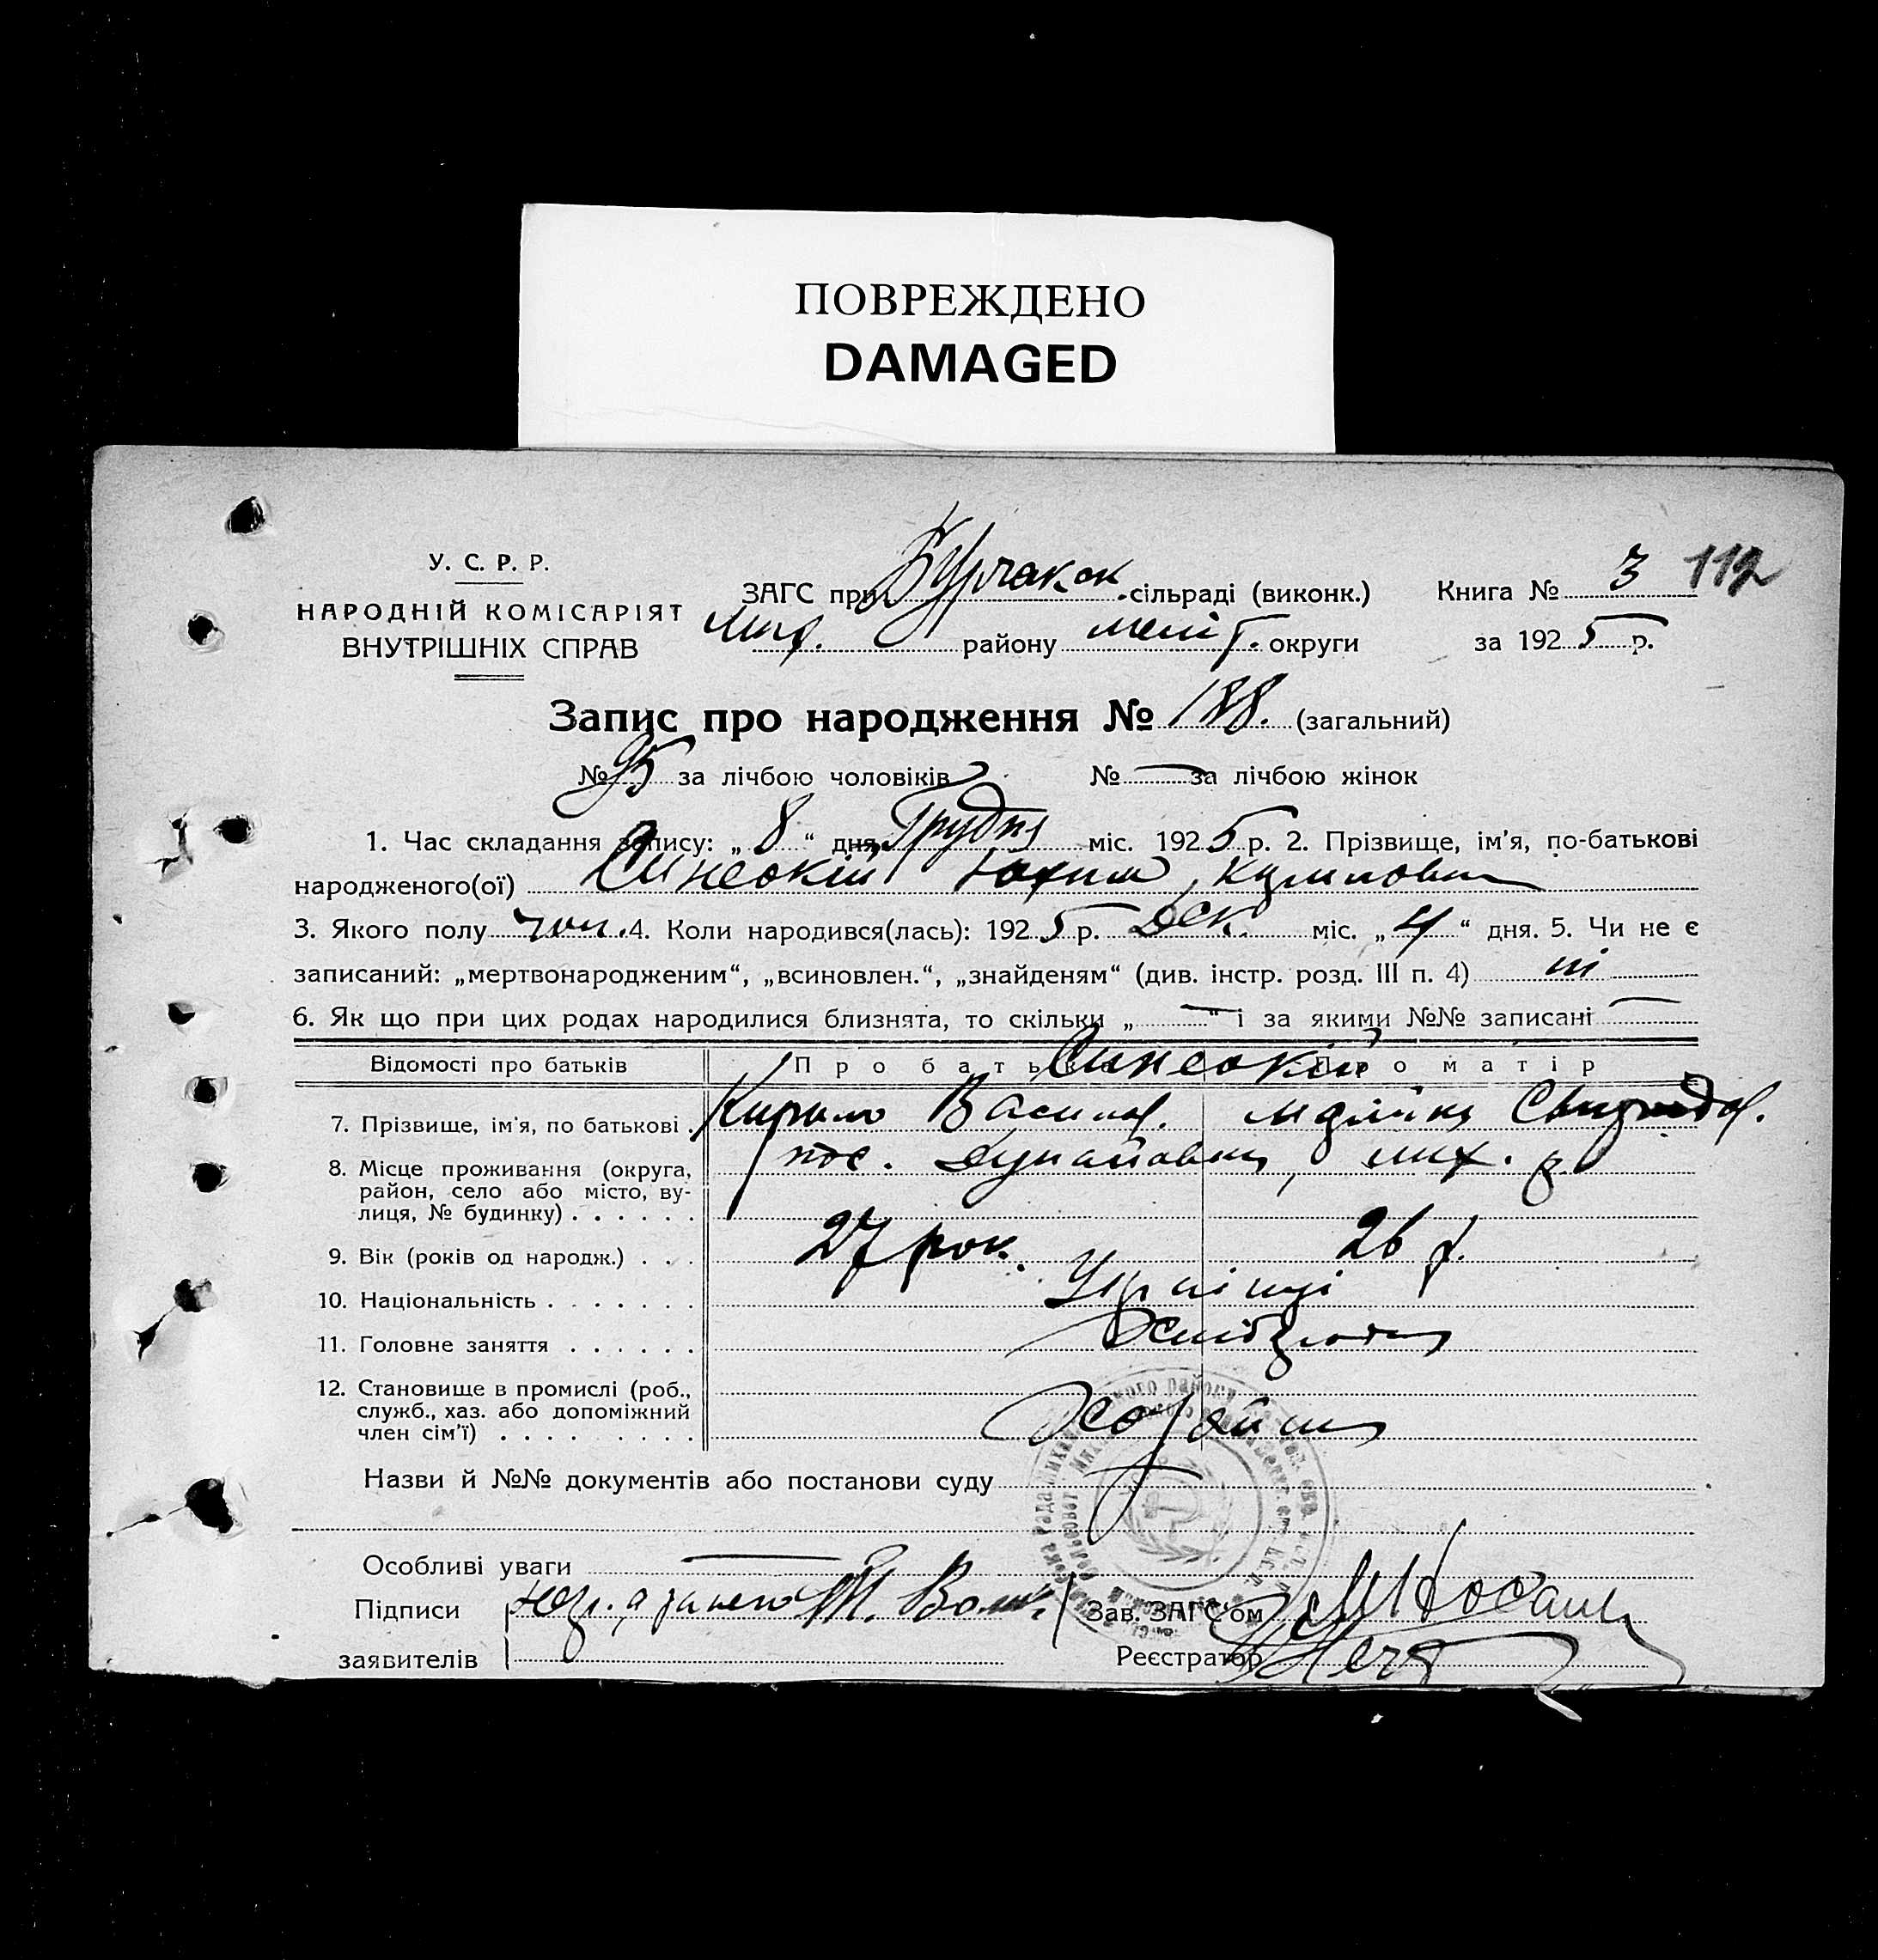 ПОВРЕЖДЕНО
DAMAGED
У. С. Р. Р.
НАРОДНІЙ КОМІСАРІЯТ
ВНУТРІШНІХ СПРАВ
ЗАГС при Бурчакск. сільраді (виконк.) Книга № 3 112
Мих. району меліт. округи за 1925 р.
Запис про народження № 188. (загальний)
№ 95 за лічбою чоловіків № — за лічбою жінок
1. Час складання запису: „ 8 “ дня Грудня міс. 1925 р. 2. Прізвище, ім'я, по-батькові
народженого(ої) Синеокий Юхим
3. Якого полу чол. 4. Коли народився(лась): 1925 р. Дек. міс. „ 4 “ дня. 5. Чи не є
записаний: „мертвонародженим“, „всиновлен.“, „знайденям“ (див. інстр. розд. III п. 4) ні
6. Як що при цих родах народилися близнята, то скільки „ — “ і за якими №№ записані —
Відомості про батьків Про батька Про матір
Синеокий
7. Прізвище, ім'я, по батькові . Кирило Васильов.
8. Місце проживання (округа, район, село або місто, ву-лиця, № будинку) . . . . . . пос. мих. р.
9. Вік (років од народж.) . . . 27 рок. 26 р.
10. Національність . . . . . . . Українці
11. Головне заняття . . . . . .
12. Становище в промислі (роб.,
служб., хаз. або допоміжний
член сім'ї) . . . . . . . . . Хозяйин
Назви й №№ документів або постанови суду
Особливі уваги —
Підписи Зав. ЗАГС'ом
заявителів Реєстратор